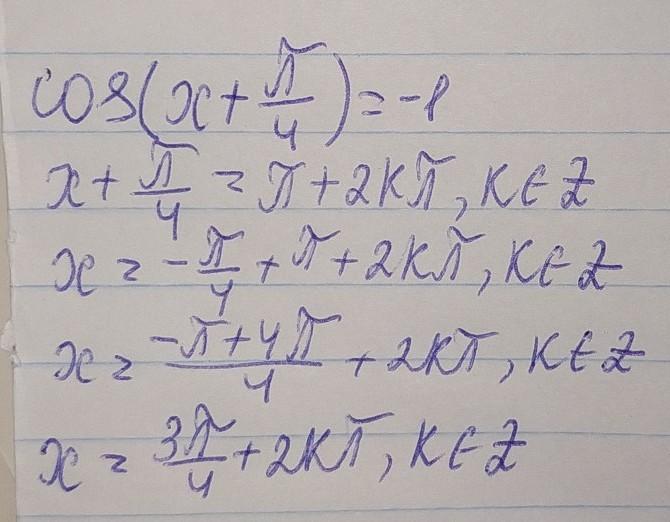 cos(x + π/4) = -1
x + π/4 = π + 2kπ, k ∈ Z
x = -π/4 + π + 2kπ, k ∈ Z
x = (-π + 4π)/4 + 2kπ, k ∈ Z
x = 3π/4 + 2kπ, k ∈ Z